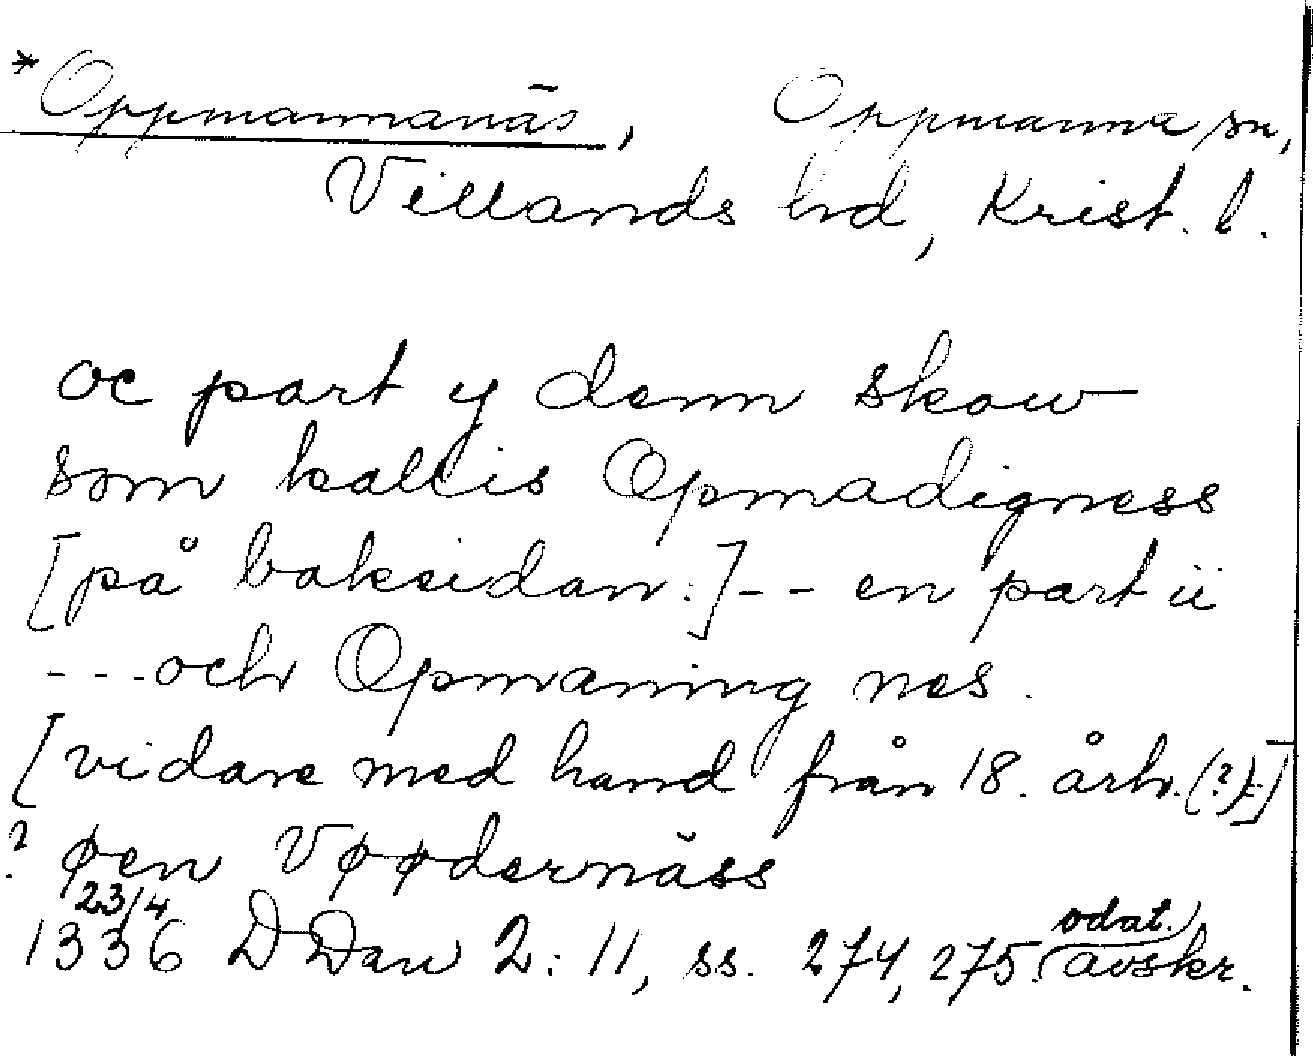 *Oppmannanäs, Oppmanna sn,
Villands hd, Krist. l.
oc part y denn skow
som kallis Opmadigness
[på baksidan:] -- en part ii
--- och Opmaning nes.
[vidare med hand från 18. årh.(?):]
? øen Vøødernäss
23/4
1336 DDan 2: 11, ss. 274, 275. odat. avskr.